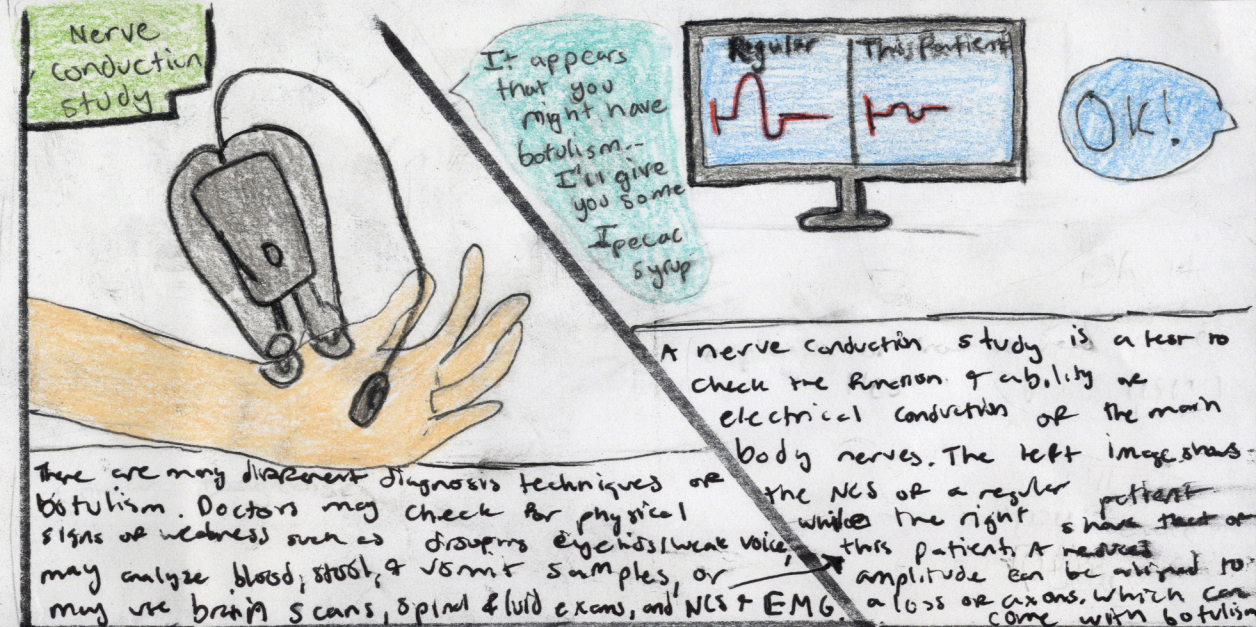 Nerve
Conduction
study
It appears
that you
might have
botulism...
I'll give
you some
Ipecac
syrup
Regular
This Patient
OK!
There are many different diagnosis techniques of
botulism. Doctors may check for physical
signs of weakness such as drooping eyelids/weak voice,
may analyze blood, stool, & vomit samples, or
may use brain scans, spinal fluid exams, and NCS + EMG.
A nerve conduction study is a test to
check the function & ability of
electrical conduction of the main
body nerves. The left image shows
the NCS of a regular patient
while the right shows that of
this patient. A reduced
amplitude can be aligned to
a loss of axons. which can
come with botulism